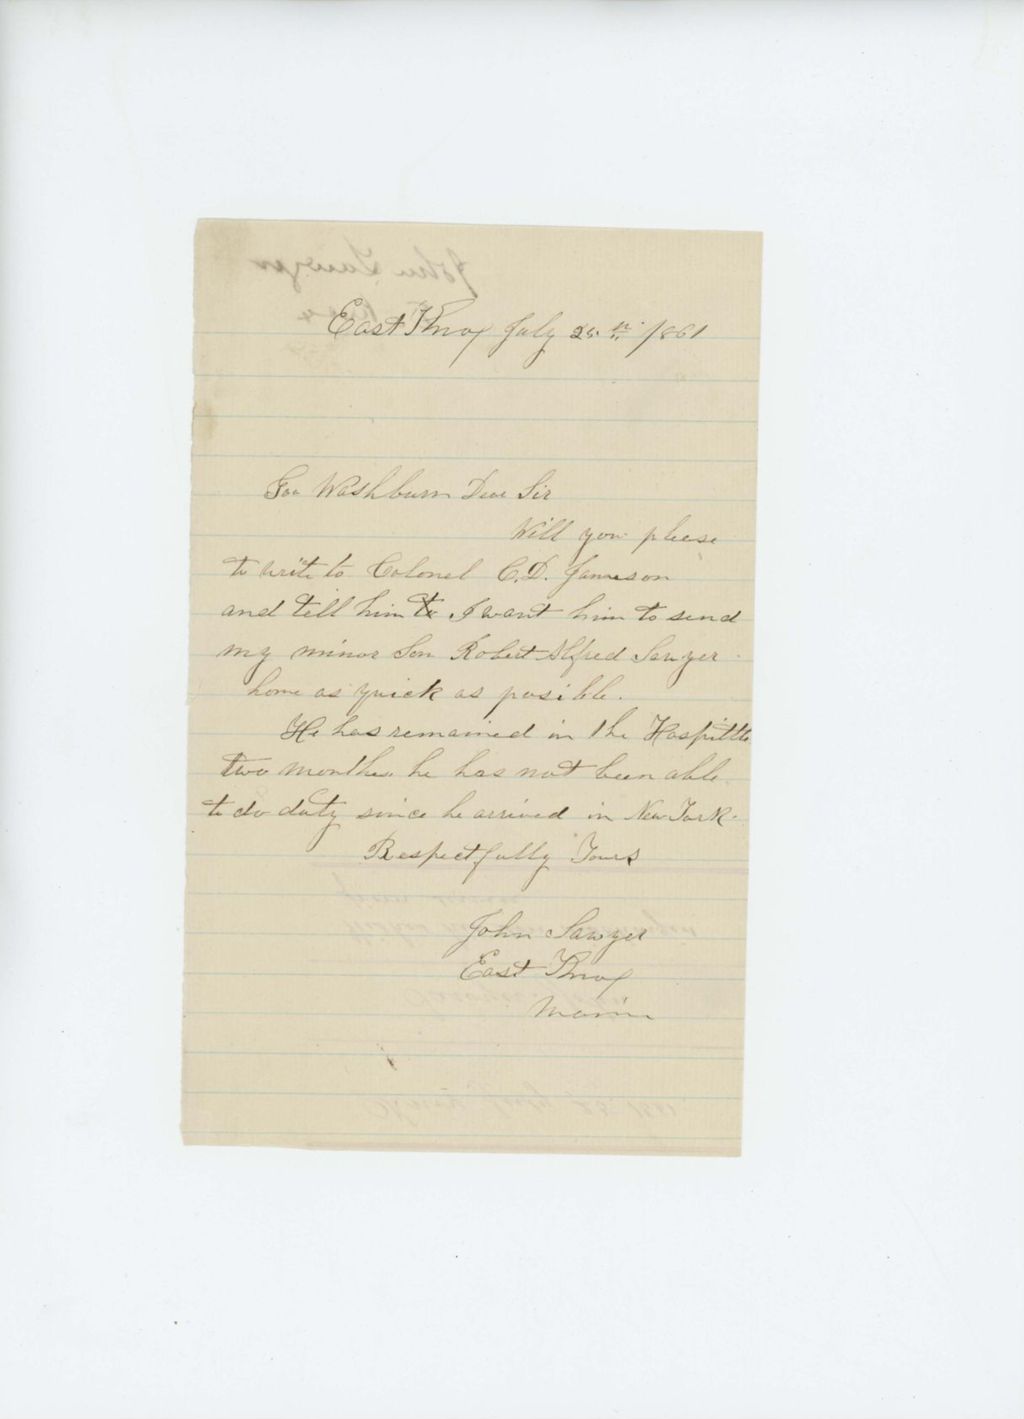 East Knox July 25.th 1861
Gov Washburn Dear Sir
Will you please
to write to Colonel C.D. Jameson
and tell him to I want him to send
my minor Son Robert Alfred Sawyer
home as quick as posible.
He has remained in the Hospittle
two months. he has not been able
to do duty since he arrived in New York.
Respectfully Yours
John Sawyer
East Knox
Maine
John Sawyer